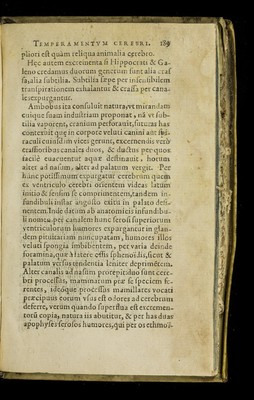 TEMPERAMENTVM CEREBRI. 189
pliori est quàm reliqua animalia cerebro.
Hęc autem excrementa si Hippocrati & Ga-
leno credamus duorum generum sunt alia cras
sa, alia subtilia. Subtilia sępe per insensibilem
transpirationem exhalantur & crassa per cana-
les expurgantur.
Ambobus ita consuluit natura, vt mirandam
cuique suam industriam proponat, nã vt sub-
tilia vaporent, cranium perforauit, suturas has
contexuit quę in corpore veluti canini aut
raculi cuiusdam vices gerunt, excernendis verò
crassioribus canales duos, & ductus per quos
facilè euacuentur atque destinauit, horum
alter ad nasum, alter ad palatum vergit. Per
hunc potissimum expurgatur cerebrum quem
ex ventriculo cerebri orientem videas latum
initio & sensim se comprimentem, tandem in-
fundibuli instar angusto exitu in palato desi-
nentem. Inde datum ab anatomicis infundibu-
li nomen per canalem hunc serosi superiorum
ventriculorum humores expurgantur in glan-
dem pituitariam nuncupatam, humores illos
veluti spongia imbibentem, per varia deinde
foramina, quæ Matere ossis sphenoidis, sicut &
palatum versus tendentia leniter deprimētem.
Alter canalis ad nasum protepitduo sunt cere-
bri processus, mammarum præ se speciem fe-
rentes, ideóque processus mamillares vocati
præcipuus eorum vsus est odores ad cerebrum
deferre, verùm quando superflua est excremen-
torũ copia, natura iis abutitur, & per has duas
apophyses serosos humores, qui per os ethmoi-